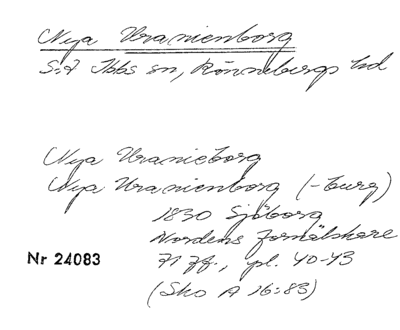 Nya Uranienborg
S:t Ibbs sn, Rönnebergs hd
Nya Uranieborg
Nya Uranienborg (-burg)
1830 Sjöborg
Nordens fornälskare
71 ff., pl. 40-43
Nr 24083
(Sko A 16:83)